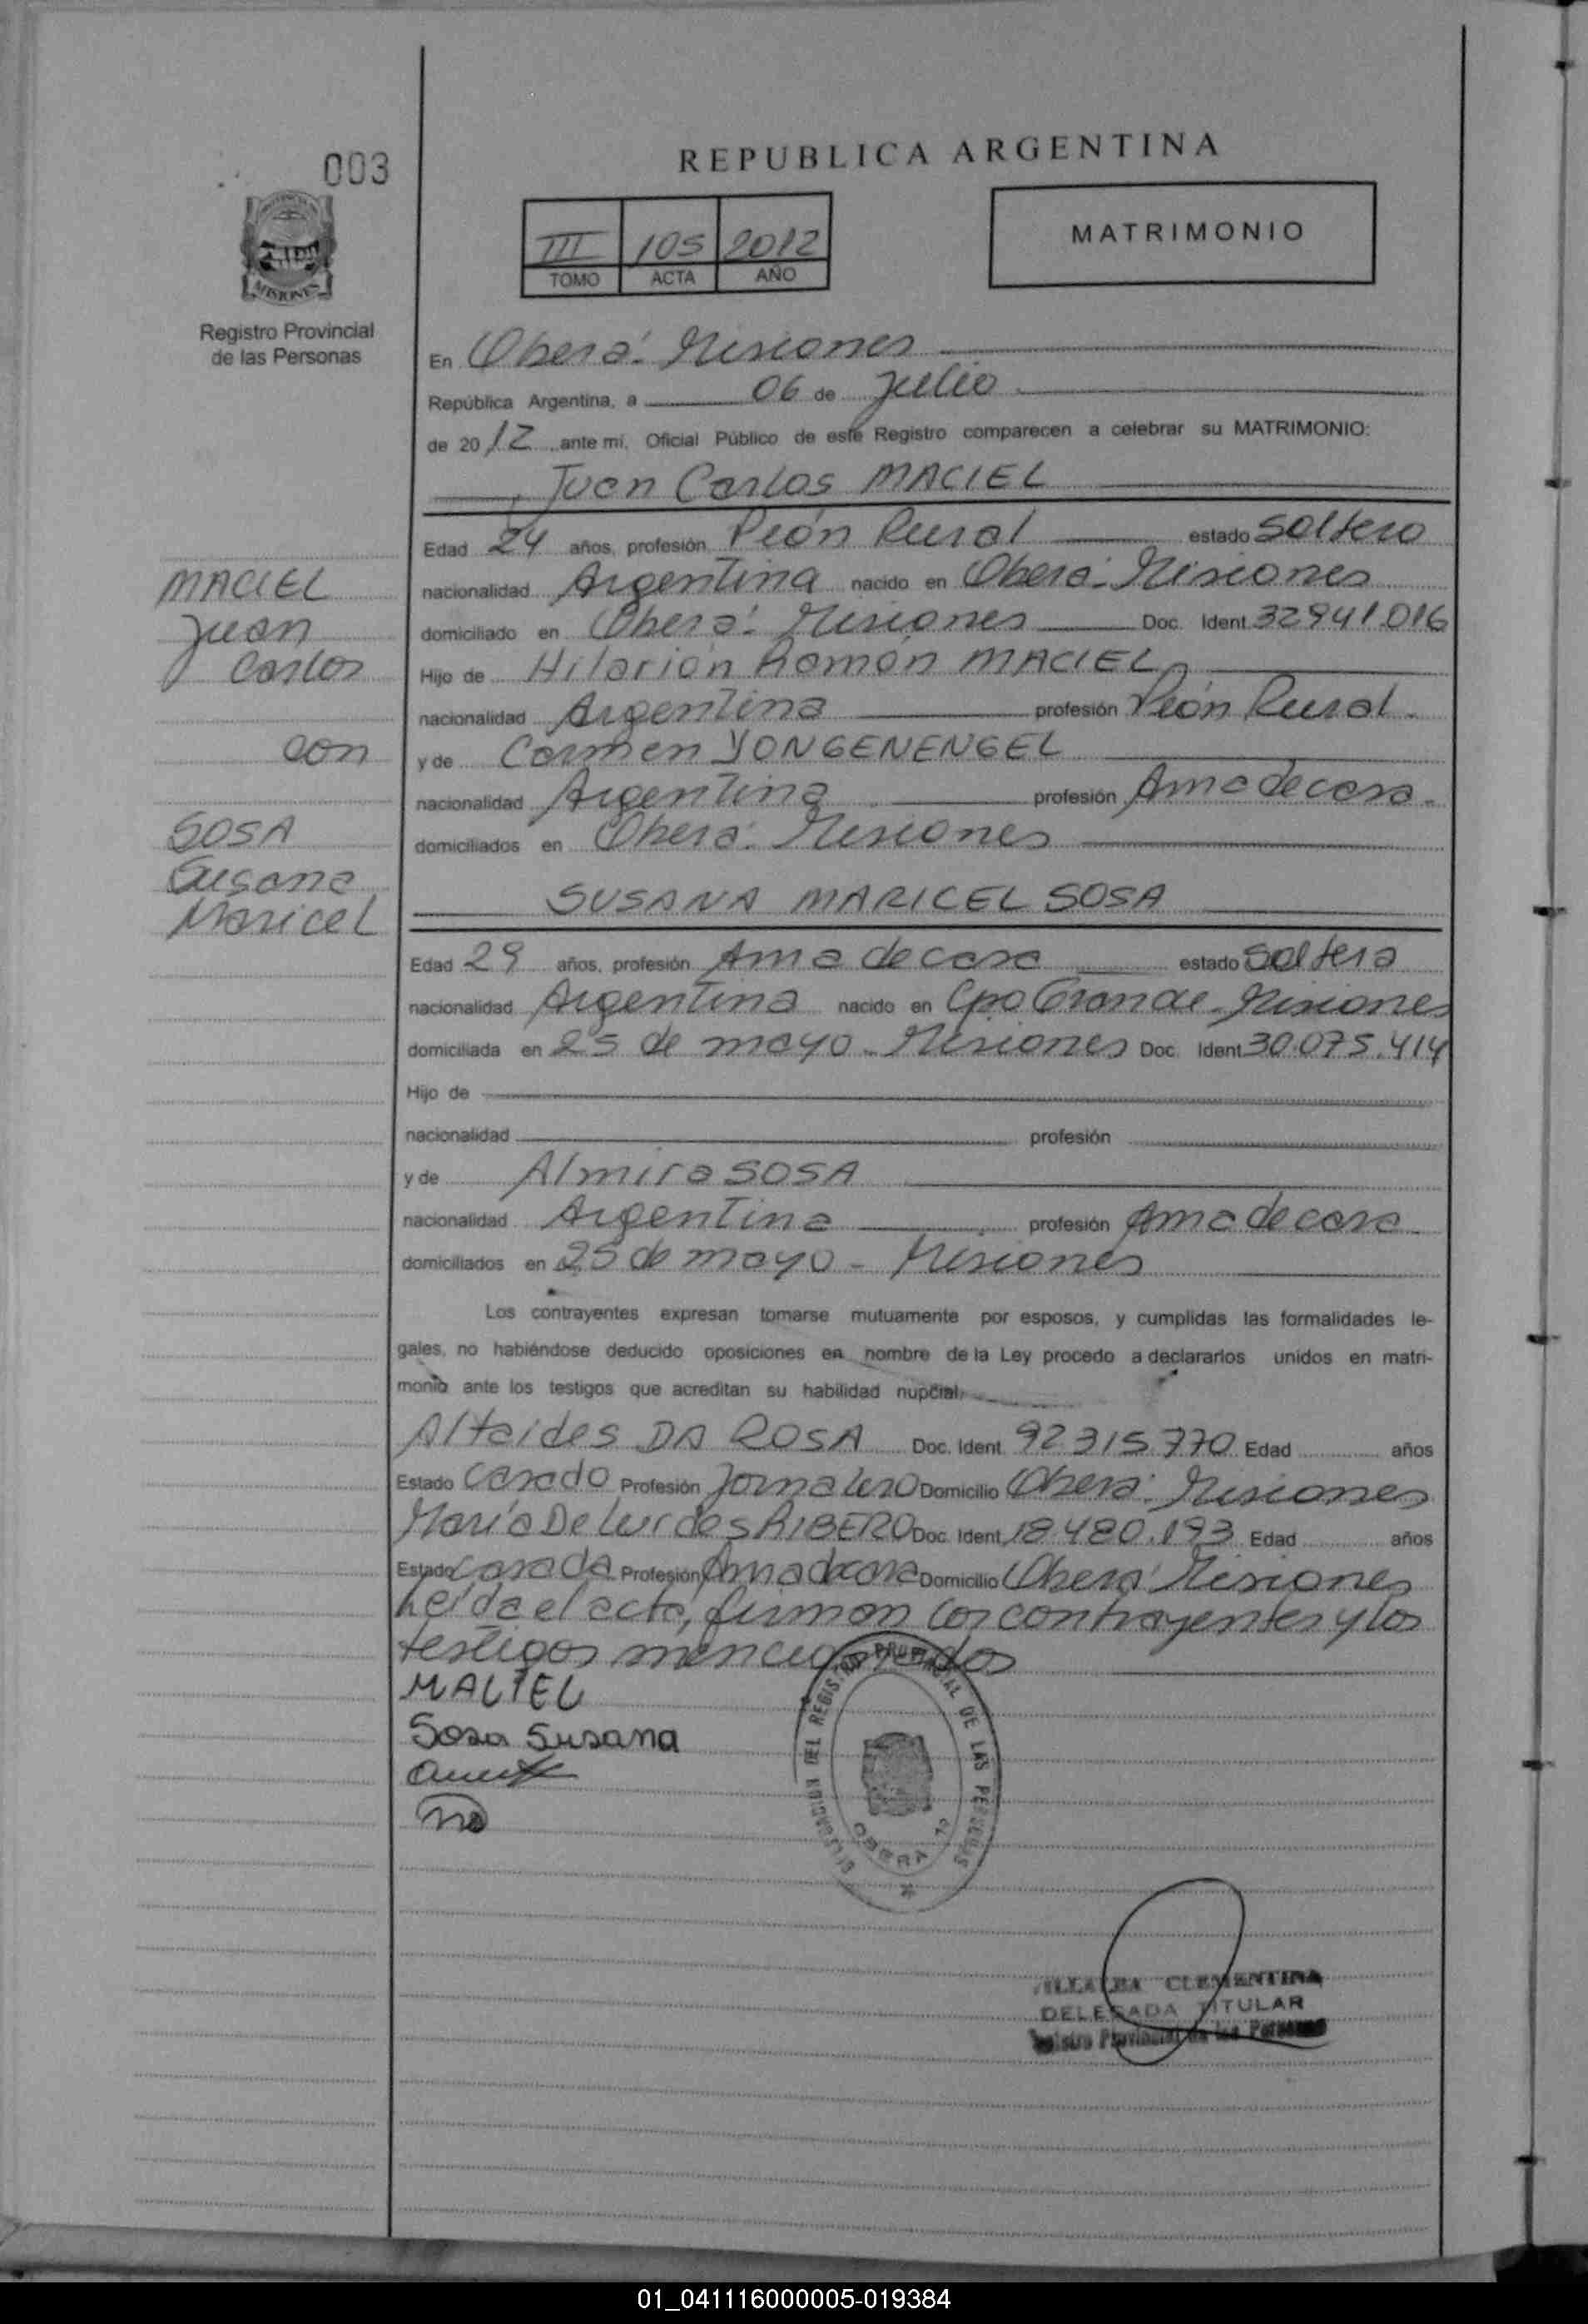 003
REPUBLICA ARGENTINA
III 105 2012
TOMO ACTA AÑO
MATRIMONIO
MISIONES
Registro Provincial
de las Personas
En Oberá. Misiones
República Argentina, a 06 de Julio
de 2012 ante mí, Oficial Público de este Registro comparecen a celebrar su MATRIMONIO:
Juan Carlos MACIEL
Edad 24 años, profesión Peón Rural estado Soltero
nacionalidad Argentina nacido en Oberá - Misiones
domiciliado en Oberá. Misiones Doc. Ident. 32941.016
Hijo de Hilarión Ramón MACIEL
nacionalidad Argentina profesión Peón Rural.
y de Carmen YONGENENGEL
nacionalidad Argentina profesión Ama de casa.
domiciliados en Oberá. Misiones
MACIEL
Juan
Carlos
con
SOSA
Susana
Maricel
SUSANA MARICEL SOSA
Edad 29 años, profesión Ama de casa estado Soltera
nacionalidad Argentina nacido en Cpo Grande - Misiones
domiciliada en 25 de mayo - Misiones Doc. Ident. 30.075.414
Hijo de
nacionalidad profesión
y de Almira SOSA
nacionalidad Argentina profesión Ama de casa
domiciliados en 25 de mayo - Misiones
Los contrayentes expresan tomarse mutuamente por esposos, y cumplidas las formalidades le-
gales, no habiéndose deducido oposiciones en nombre de la Ley procedo a declararlos unidos en matri-
monio ante los testigos que acreditan su habilidad nupcial,
Altaides DA ROSA Doc. Ident. 92315.770 Edad años
Estado Casado Profesión Jornalero Domicilio Oberá. Misiones
María De Lurdes RIBERO Doc. Ident. 18.480.193 Edad años
Estado Casada Profesión Ama de casa Domicilio Oberá Misiones
Leída el acta, firman los contrayentes y los
testigos mencionados
MACIEL
Sosa Susana
DEL REGISTRO PROVINCIAL DE LAS PERSONAS
OBERA
VILLALBA CLEMENTINA
DELEGADA TITULAR
Registro Provincial de las Personas
01_041116000005-019384